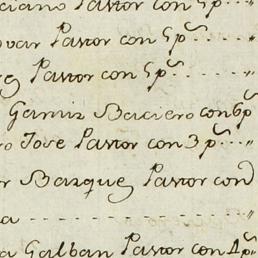 ciano Pastor con 5p.s
ovar Pastor con 5p.s
Pastor con 5p.s
Gamiz Baciero con 6p
o Jose Pastor con 3p.s
r Bazques Pastor con
a
a Galban Pastor con 4p.s